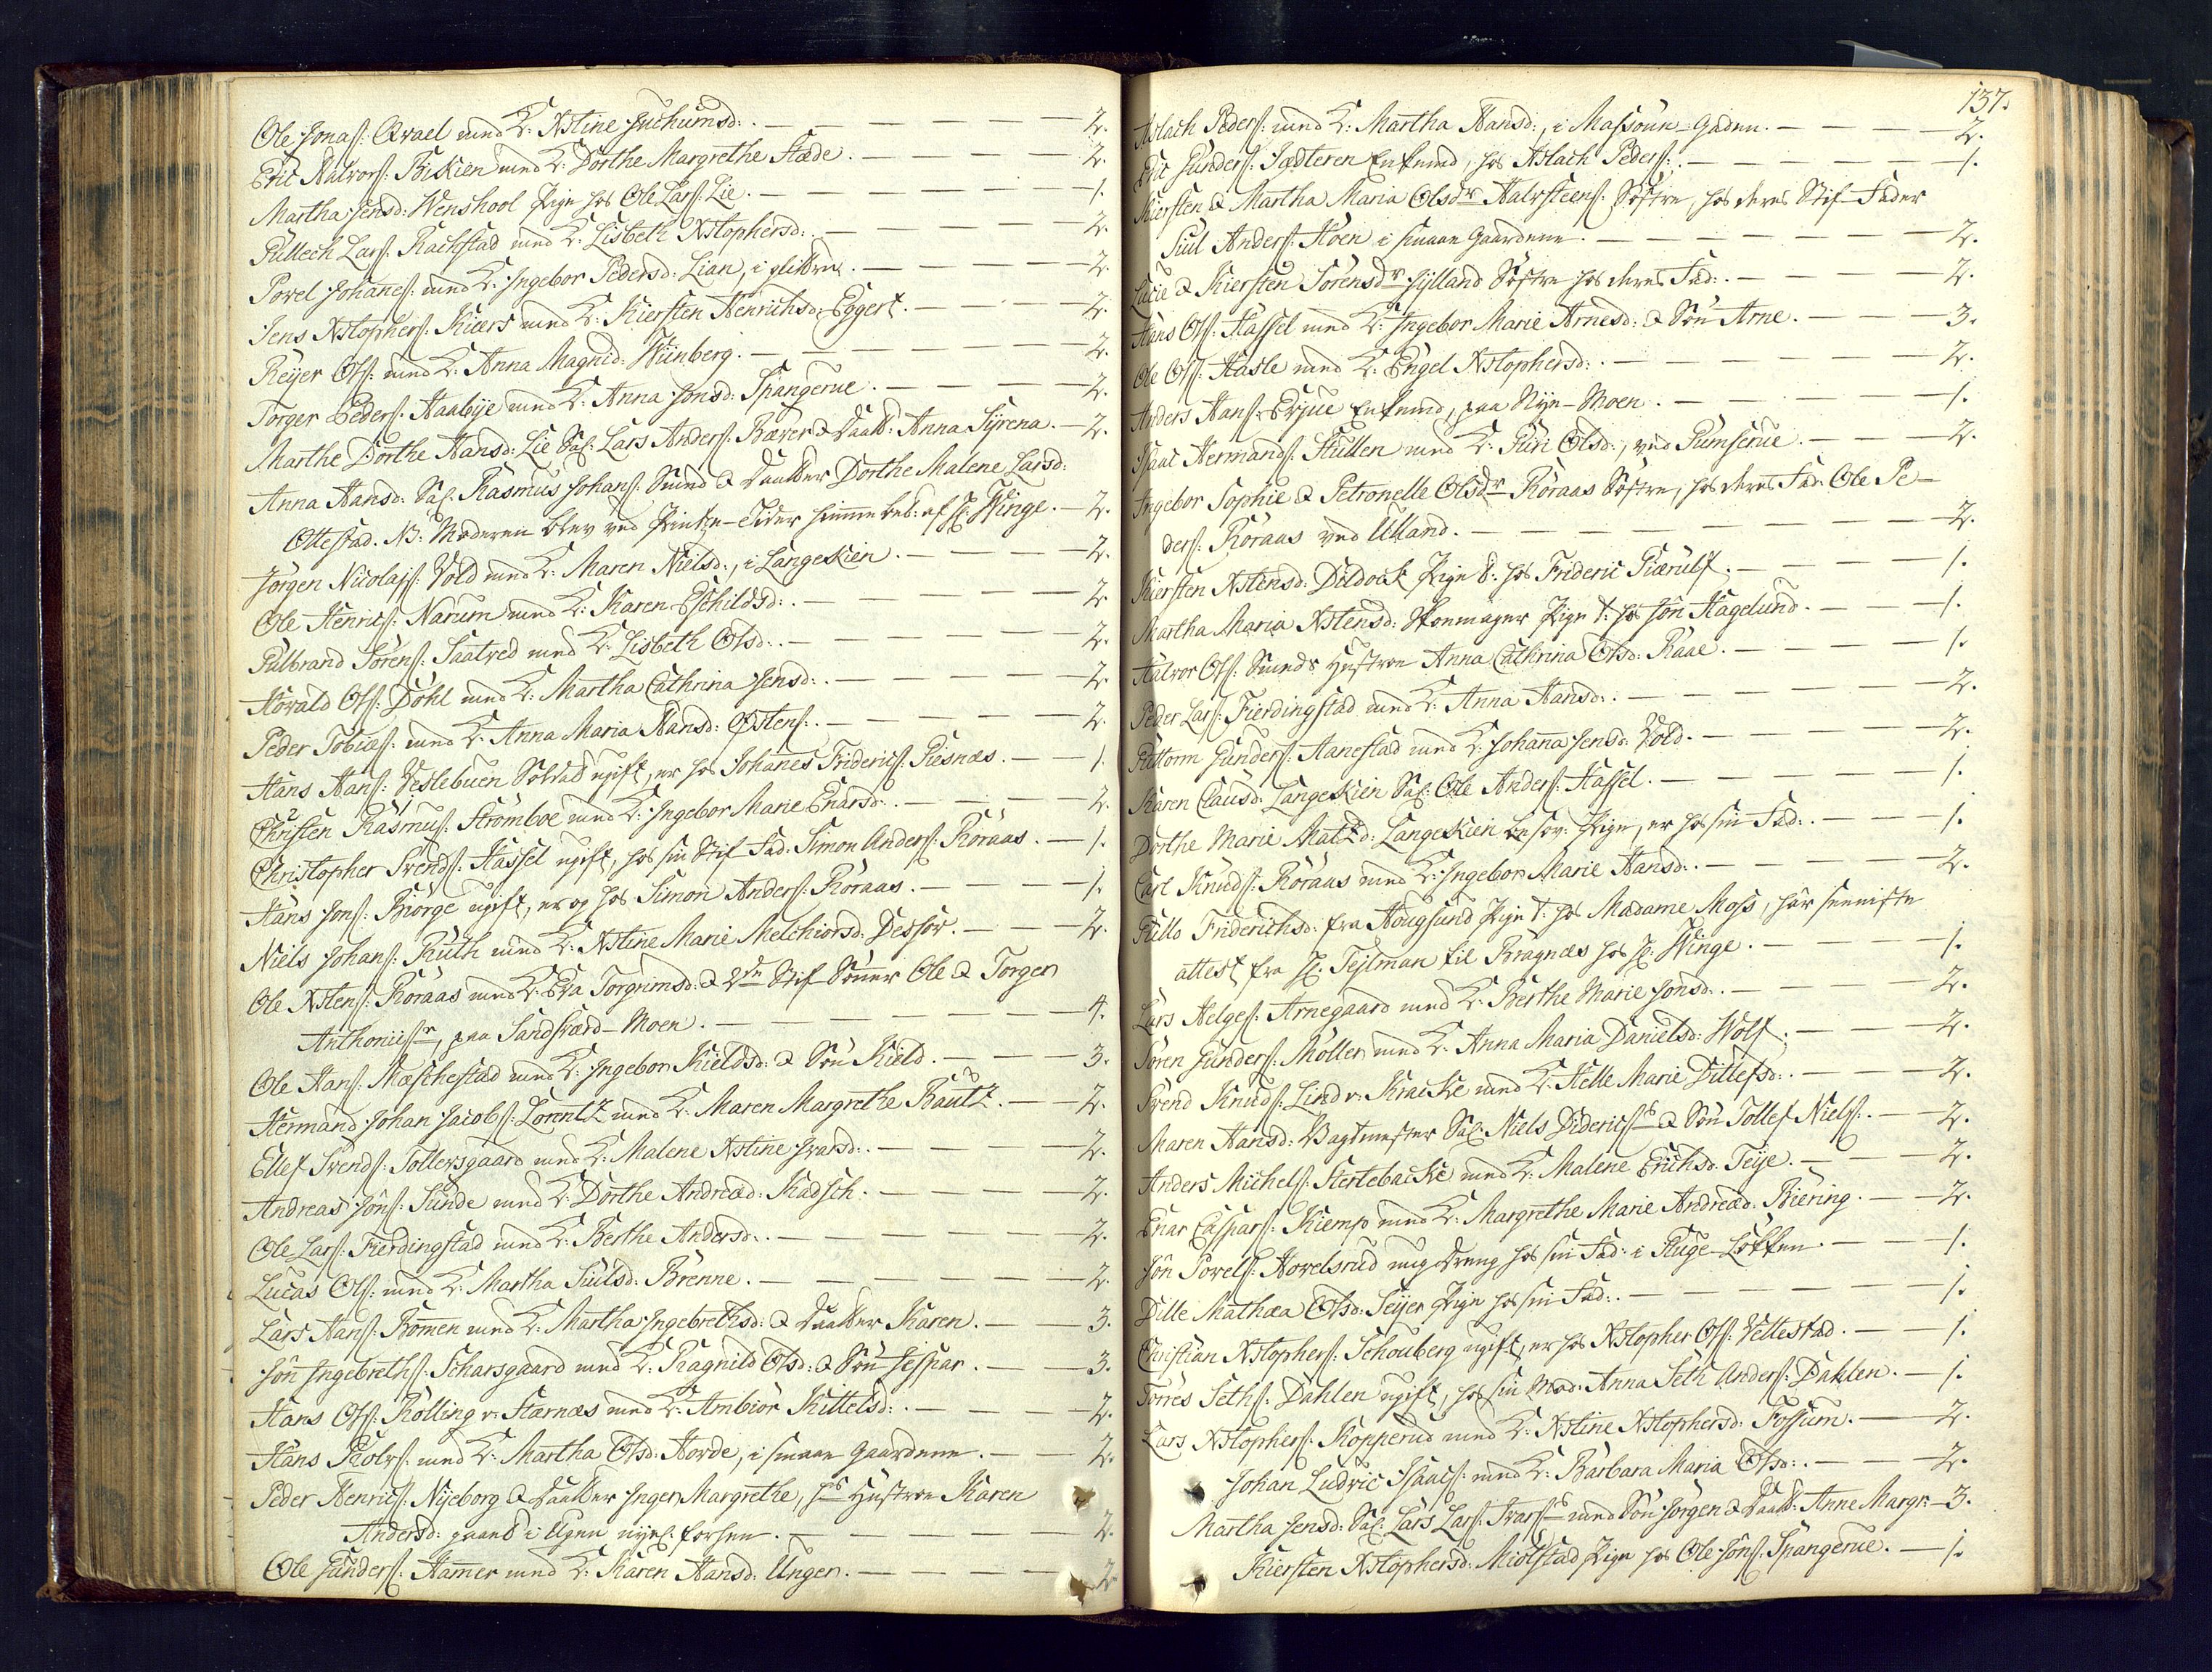 Ole Jonas: Qvael med K: Xstine Jochumsd: . — 2.
Eric Halvors: Bekien med K: Dorthe Margrethe Stæde. — 2.
Martha Jensd: Wenshool Pige hos Ole Lars: Lie. — 1.
Gullech Lars: Rachstad med K: Lisbeth Xstophersd: . — 2.
Povel Johanes: med K: Ingebor Pedersd: Lian, i — 2.
Jens Xstophers: Kiærs med K: Kiersten Henrichsd: Eggert. — 2.
Reyer Ols: med K: Anna Magnid: Wiinberg. — 2.
Torger Peders: Haabye med K: Anna Jonsd: Spangerue. — 2.
Marthe Dorthe Hansd: Lie Sal: Lars Anders: Bæver & Daatt: Anna Syrena. — 2.
Anna Hansd: Sal: Rasmus Johans: Smed & Daatter Dorthe Malene Larsd:
Ottestad. NB: Moderen blev ved Pintze-Tider hiemme bet: af Hr: Winge. — 2.
Jørgen Nicolajs: Vold med K: Maren Nielsd:, i Langeskien. — 2.
Ole Henrics: Narum med K: Karen Eschildsd: . — 2
Gulbrand Sørens: Saatved med K: Lisbeth Olsd: . — 2.
Howald Ols: Døhl med K: Martha Cathrina Jensd: . — 2
Peder Tobias: med K: Anna Maria Hansd: Østens: . — 2.
Hans Hans: Veslebuen Soldat ugift, er hos Johanes Friderics: Giesnæs. — 1.
Christen Rasmus: Strømboe med K: Ingebor Marie Enarsd: . — 2.
Christopher Svends: Hassel ugift, hos sin Stif Fad: Simon Anders: Røraas. — 1.
Hans Jons: Biørge ugift, er og hos Simon Anders: Røraas. — 1.
Niels Johans: Ruth med K: Xstine Marie Melchiorsd: Dessør. — 2.
Ole Xstens: Røraas med K: Eva Torgrimsd: & 2de Stif Sønner Ole & Torger
Anthoniisr, paa Sandsværd-Moen. — 4.
Ole Hans: Mæschestad med K: Ingebor Kieldsd: & Søn Kield. — 3.
Hermand Johan Jacobs: Lorentz med K: Maren Margrethe Bautz. — 2.
Ellef Svends: Tollersgaard med K: Malene Xstine Ivarsd: . — 2.
Andreas Jøns: Sunde med K: Dorthe Andread: Kadsch. — 2.
Ole Lars: Fierdingstad med K: Berthe Andersd: . — 2.
Lucas Ols: med K: Martha Juulsd: Brenne. — 2.
Lars Hans: Bømmen med K: Martha Ingebrethsd: & Daatter Karen. — 3.
Jøn Ingebreths: Scharsgaard med K: Ragnild Olsd: & Søn Jesper. — 3.
Hans Ols: Kølling v: Stærnæs med K: Ambiør Kittelsd: . — 2.
Hans Rolvs: med K: Martha Olsd: Horde, i smaae Gaardene. — 2.
Peder Henrics: Nyeborg & Daatter Inger Margrethe, hs Hustroe Karen
Andersd: gaaet i Ugen nyel: forhen. — 2.
Ole Gunders: Hamer med K: Karen Hansd: Unger. — 2
137.
Aslach Peders: med K: Martha Hansd:, i Massoun-Gaden. — 2.
Eric Gunders: Sæteren Enkemd, hos Aslach Peders: . — 1.
Kiersten & Martha Maria Olsdr Halvsteens: Søstre, hos deres Stif-Fader
Juul Anders: Høen i smaae Gaardene. — 2.
Lucie & Kiersten Sørensdr Jylland Søstre hos deres Fad: . — 2.
Hans Ols: Hassel med K: Ingebor Marie Arnesd: & Søn Arne. — 3.
Ole Ols: Hasle med K: Engel Xstophersd: . — 2.
Anders Hans: Erjue Enkemd, paa Nye-Moen. — 1.
Isaac Hermands: Hullen med K: Guri Olsd:, ved Gumserue. — 2.
Ingebor Sophie & Petronelle Olsdr Røraas Søstre, hos deres Fad: Ole Pe-
ders: Røraas ved Ulland. — 2.
Kiersten Xstensd: Døldock Pige t: hos Frideric Giærulf. — 1.
Martha Maria Xstensd: Skoemager Pige t: hos Jøn Hagelund. — 1.
Halvor Ols: Smeds Hustroe Anna Cathrina Olsd: Raae. — 1.
Peder Lars: Fierdingstad med K: Anna Hansd: . — 2.
Guttorm Gunders: Aanestad med K: Johana Jensd: Vold. — 2.
Karen Clausd: Langeskien Sal: Ole Anders: Hassel. — 1.
Dorthe Marie Matzd: Langeskien besov: Pige, er hos sin Fad: . — 1.
Carl Knuds: Røraas med K: Ingebor Marie Hansd: . — 2.
Gullo Friderichsd: fra Hougsund Pige t: hos Madame Moss, har seeniste
attest fra Hr: Tejlman til Bragnæs hos Hr: Winge. — 1.
Lars Helges: Arnegaard med K: Berthe Marie Jonsd: . — 2.
Søren Gunders: Møller med K: Anna Maria Danielsd: Wolf. — 2.
Svend Knuds: Lind v: Kracke med K: Helle Marie Ditlefsd: . — 2.
Maren Hansd: Vagtmester Sal: Niels Didericss & Søn Tollef Niels: . — 2.
Anders Michels: Stertebacke med K: Malene Erichsd: Teije. — 2.
Enar Caspars: Kiemp med K: Margrethe Marie Andread: Biering. — 2.
Jøn Povels: Hovelsrud ung Dreng hos sin Fad: i Fluge-Løkken. — 1.
Dille Mathæa Olsd: Seijer Pige hos sin Fad: . — 1.
Christian Xstophers: Schouberg ugift, er hos Xstopher Ols: Veltestad. — 1.
Torres Seths: Dahlen ugift, hos sin Mod: Anna Seth Anders: Dahlen. — 1.
Lars Xstophers: Kopperud med K: Xstine Xstophersd: Fossum. — 2.
Johan Ludvic Isaacs: med K: Barbara Maria Olsd: . — 2.
Martha Jensd: Sal: Lars Lars: Ivarss med Søn Jørgen & Daatt: Anne Margr: — 3.
Kiersten Xstophersd: Miølstad Pige hos Ole Jons: Spangerue. — 1.